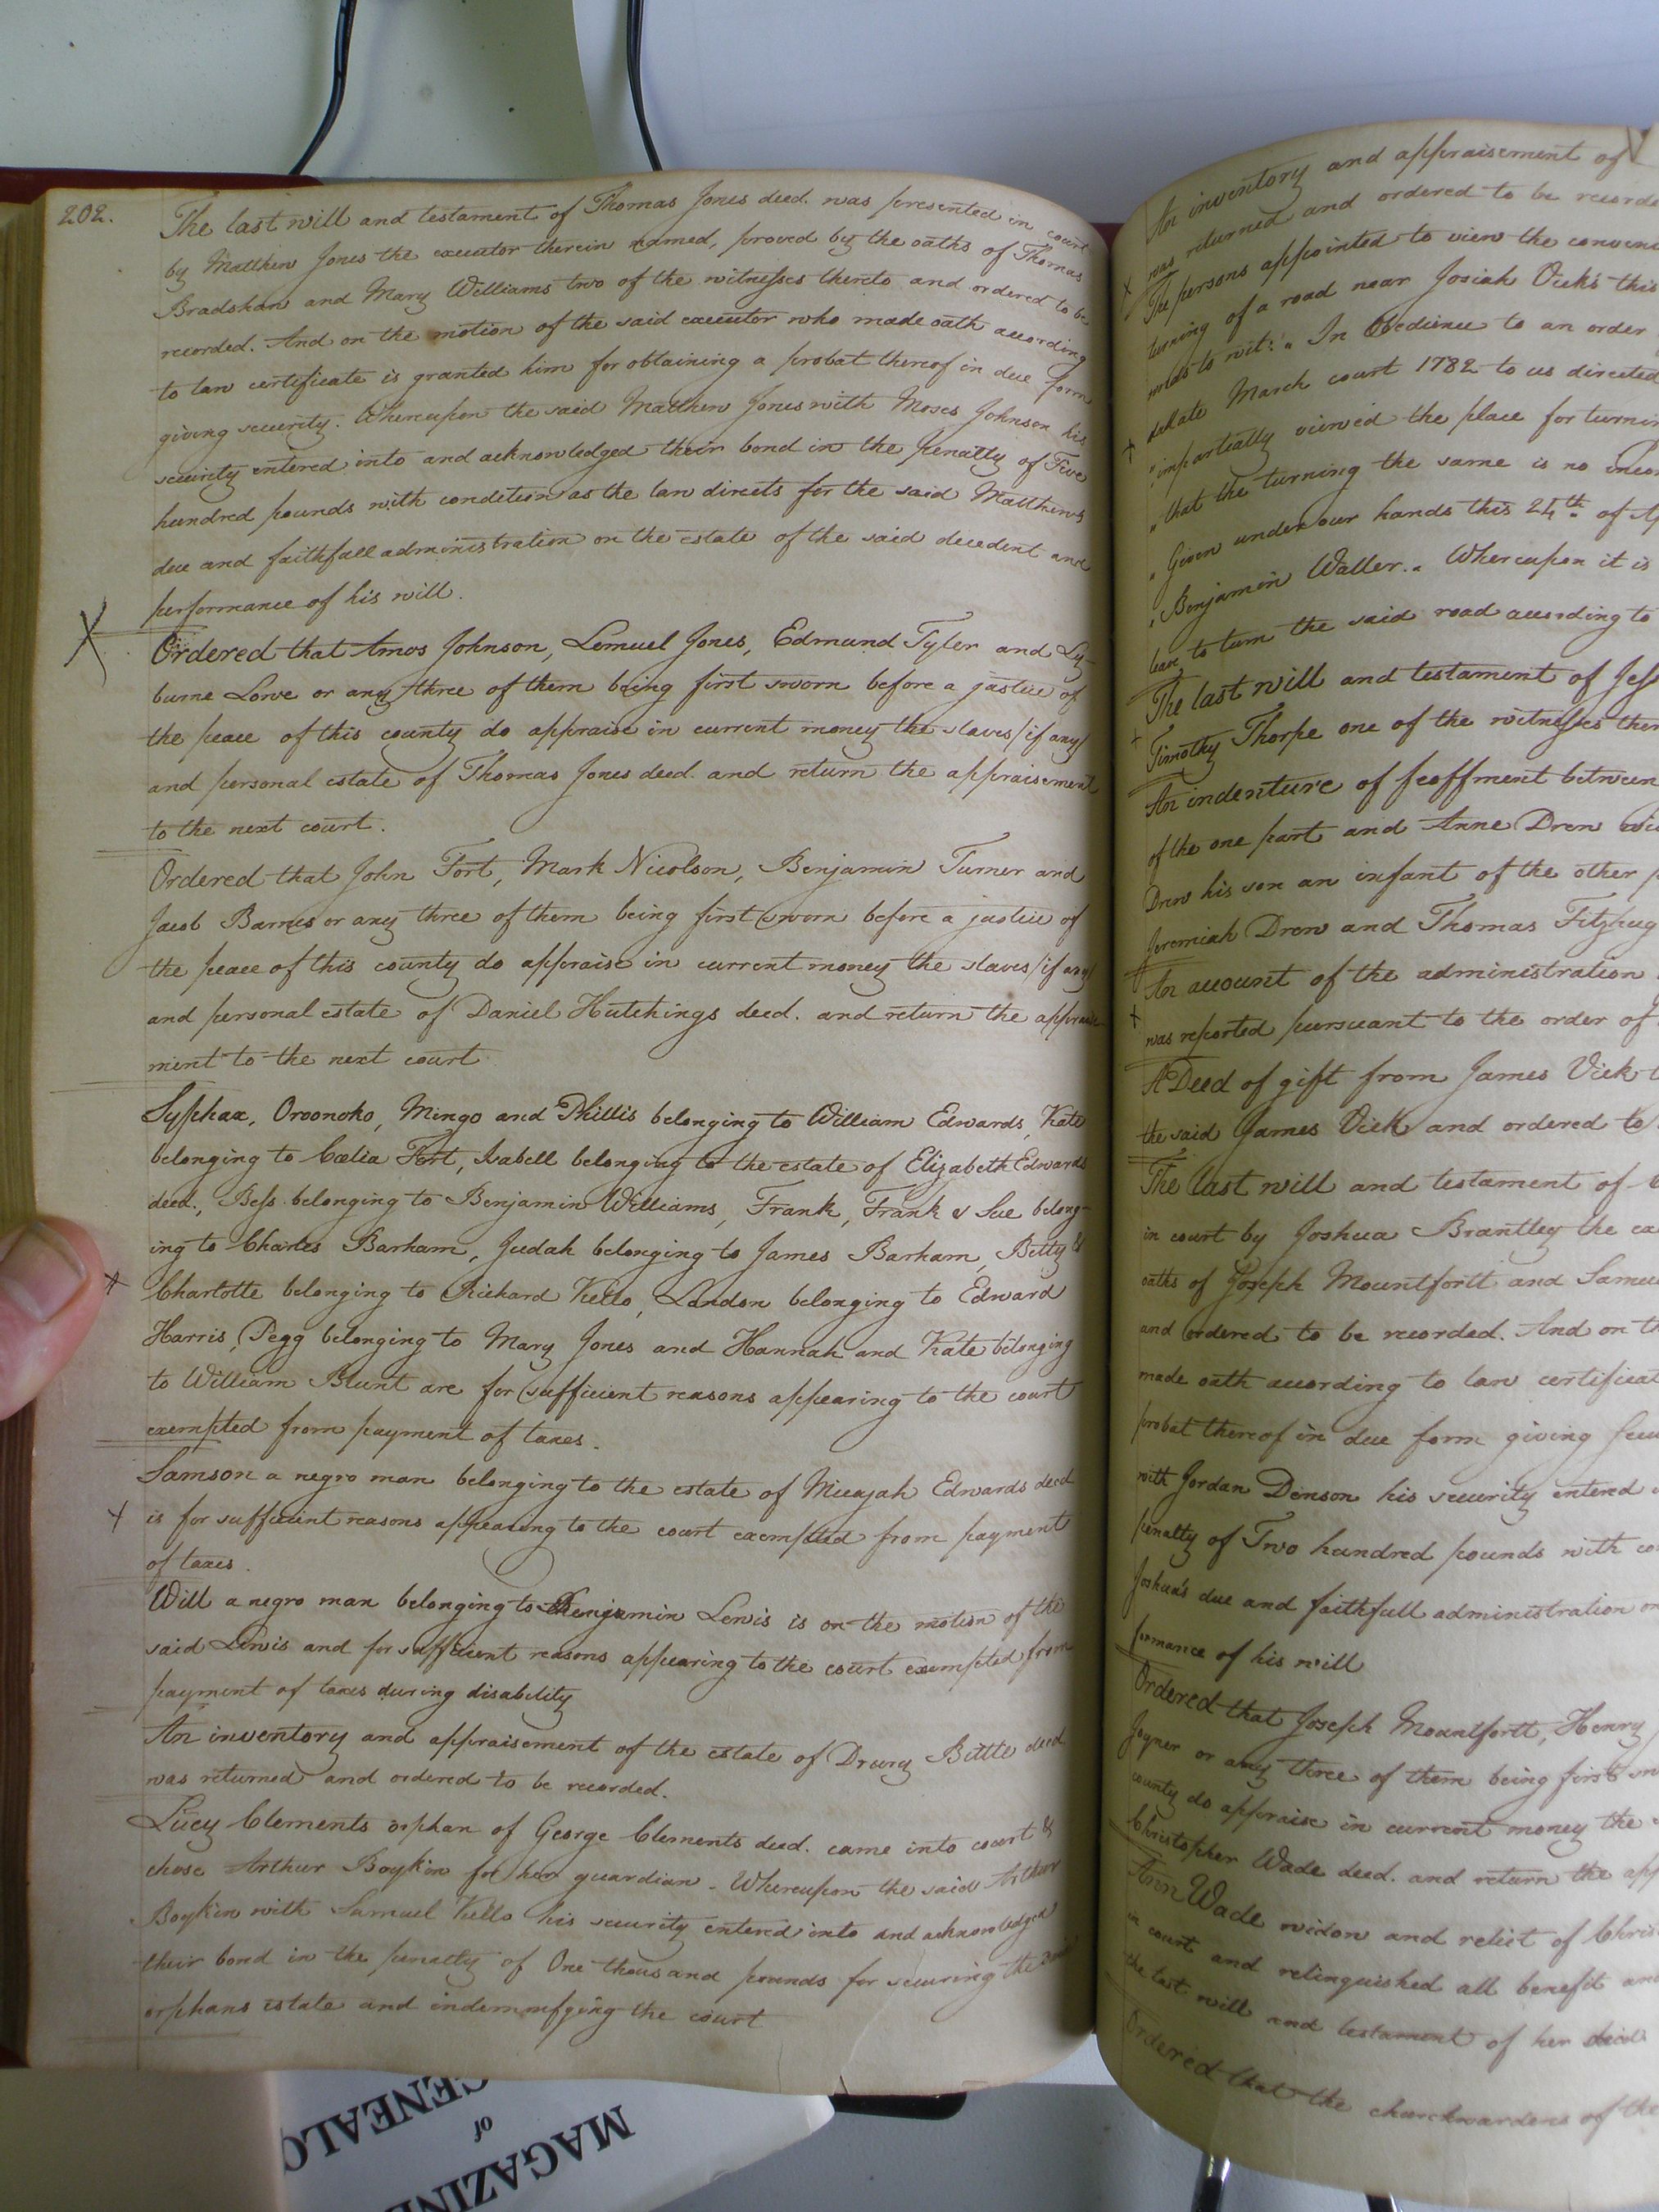 202.
The last will and testament of Thomas Jones deed. was presented in court
by Matthew Jones the executor therein named, proved by the oaths of Thomas
Bradshaw and Mary Williams two of the witnesses thereto and ordered to be
recorded. And on the motion of the said executor who made oath according
to law certificate is granted him for obtaining a probat thereof in due form
giving security. Whereupon the said Matthew Jones with Moses Johnson his
security entered into and acknowledged their bond in the penalty of Five
hundred pounds with condition as the law directs for the said Matthews
due and faithfull administration on the estate of the said decedent and
performance of his will.
Ordered that Amos Johnson, Lemuel Jones, Edmund Tyler and Ly-
burne Lowe or any three of them being first sworn before a justice of
the peace of this county do appraise in current money the slaves /if any/
and personal estate of Thomas Jones deed. and return the appraisement
to the next court.
Ordered that John Fort, Mark Nicolson, Benjamin Turner and
Jacob Barnes or any three of them being first sworn before a justice of
the peace of this county do appraise in current money the slaves /if any/
and personal estate of Daniel Hutchings deed. and return the appraise
ment to the next court
Syphax, Oroonoko, Mingo and Phillis belonging to William Edwards, Kate
belonging to Cœlia Fort, Isabell belonging to the estate of Elizabeth Edwards
deed., Bess belonging to Benjamin Williams, Frank, Frank & Sue belong-
ing to Charles Barham, Judah belonging to James Barham, Betty &
Charlotte belonging to Richard Kello, London belonging to Edward
Harris, Pegg belonging to Mary Jones and Hannah and Kate belonging
to William Blunt are for sufficient reasons appearing to the court
exempted from payment of taxes.
Samson a negro man belonging to the estate of Micajah Edwards deed
is for sufficient reasons appearing to the court exempted from payment
of taxes.
Will a negro man belonging to Benjamin Lewis is on the motion of the
said Lewis and for sufficient reasons appearing to the court exempted from
payment of taxes during disability
An inventory and appraisement of the estate of Drury Bittle deed
was returned and ordered to be recorded.
Lucy Clements orphan of George Clements deed. came into court &
chose Arthur Boykin for her guardian. Whereupon the said Arthur
Boykin with Samuel Kello his security entered into and acknowledged
their bond in the penalty of One thousand pounds for securing the said
orphans estate and indemnifying the court
An inventory and appraisement of
was returned and ordered to be recorde
The persons appointed to view the conveni
turning of a road near Josiah Vick's this
to wit: "In Obedience to an order
March court 1782 to us directed
"impartially viewed the place for turnin
"that the turning the same is no incon
"Given under our hands this 24th. of Ap
"Benjamin Waller." Whereupon it is
leave to turn the said road according to
The last will and testament of Jess
Timothy Thorpe one of the witnesses ther
An indenture of feoffment between
of the one part and Anne Drew wi
Drew his son an infant of the other p
Jeremiah Drew and Thomas Fitzhug
An account of the administration
was reported pursuant to the order of
A Deed of gift from James Vick t
the said James Vick and ordered to
The last will and testament of
in court by Joshua Brantley the ex
oaths of Joseph Mountfortt and Samue
and ordered to be recorded. And on th
made oath according to law certificat
probat thereof in due form giving secu
with Jordan Denson his security entered
penalty of Two hundred pounds with co
Joshua's due and faithfull administration on
formance of his will
Ordered that Joseph Mountfortt, Henry
Joyner or any three of them being first sw
county do appraise in current money the
Christopher Wade deed. and return the app
Ann Wade widow and relict of Chris
in court and relinquished all benefit and
the last will and testament of her deed.
Ordered that the churchwardens of the
MAGAZINE
of
GENEALO